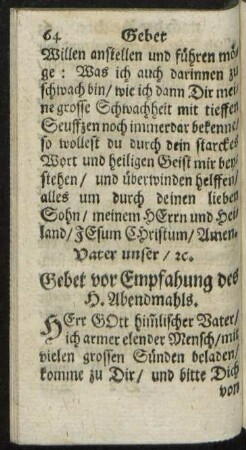 64 Gebet
Willen anstellen und führen mö-
ge : Was ich auch darinnen zu
schwach bin / wie ich dann Dir mei-
ne grosse Schwachheit mit tieffen
Seuffzen noch immerdar bekenne /
so wollest du durch dein starckes
Wort und heiligen Geist mir bey-
stehen / und überwinden helffen /
alles um durch deinen lieben
Sohn / meinem HErrn und Hei-
land / JEsum CHristum / Amen.
Vater unser / ꝛc.
Gebet vor Empfahung des
H. Abendmahls.
HErr GOtt him̃lischer Vater /
ich armer elender Mensch / mit
vielen grossen Sünden beladen /
komme zu Dir / und bitte Dich
von